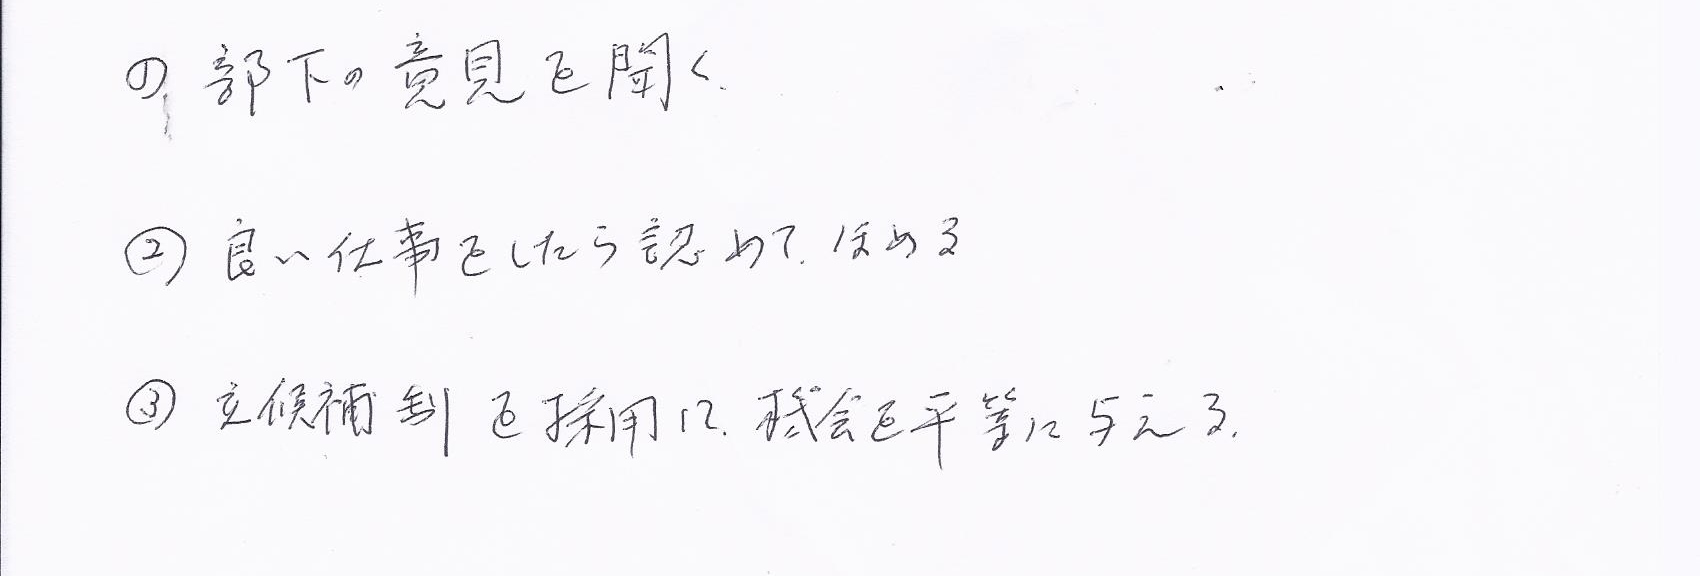 ① 部下の意見を聞く.
② 良い仕事をしたら認めて、ほめる
③ 立候補制を採用に、機会を平等に与える.